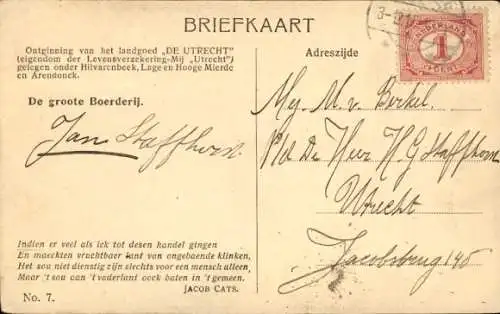 BRIEFKAART
Ontginning van het landgoed „DE UTRECHT”
(eigendom der Levensverzekering-Mij „Utrecht”)
gelegen onder Hilvarenbeek, Lage en Hooge Mierde
en Arendonck.
De groote Boerderij.
Jan Stafhorst
Indien er veel als ick tot desen handel gingen
En maeckten vruchtbaer lant van ongebaende klinken,
Het sou niet dienstig zijn slechts voor een mensch alleen,
Maar 't sou aan 't vaderlant oock baten in 't gemeen.
JACOB CATS.
No. 7.
Adreszijde
3-
NEDERLAND
1
CENT
Mej. M. v. Berkel.
P/d De Heer H G Stafhorst
Utrecht
Jacobsbrug 140